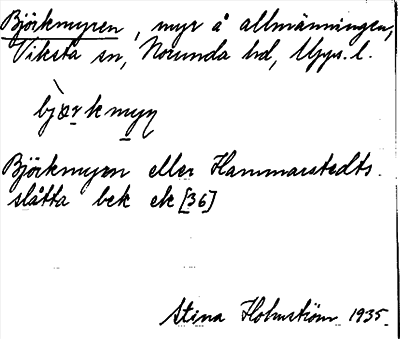 Björkmyren, myr å allmänningen,
Viksta sn, Norunda hd, Upps. l.
bjærkmyṇ
Björkmyren eller Hammarstedts
slåtta bek ek [36]
Stina Holmström 1935.